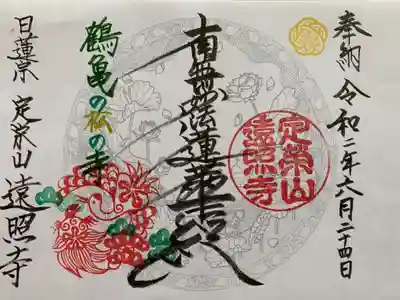 奉納 令和二年六月二十四日
定栄山
遠照寺
南無妙法蓮華経
鶴亀の松の寺
日蓮宗 定榮山 遠照寺